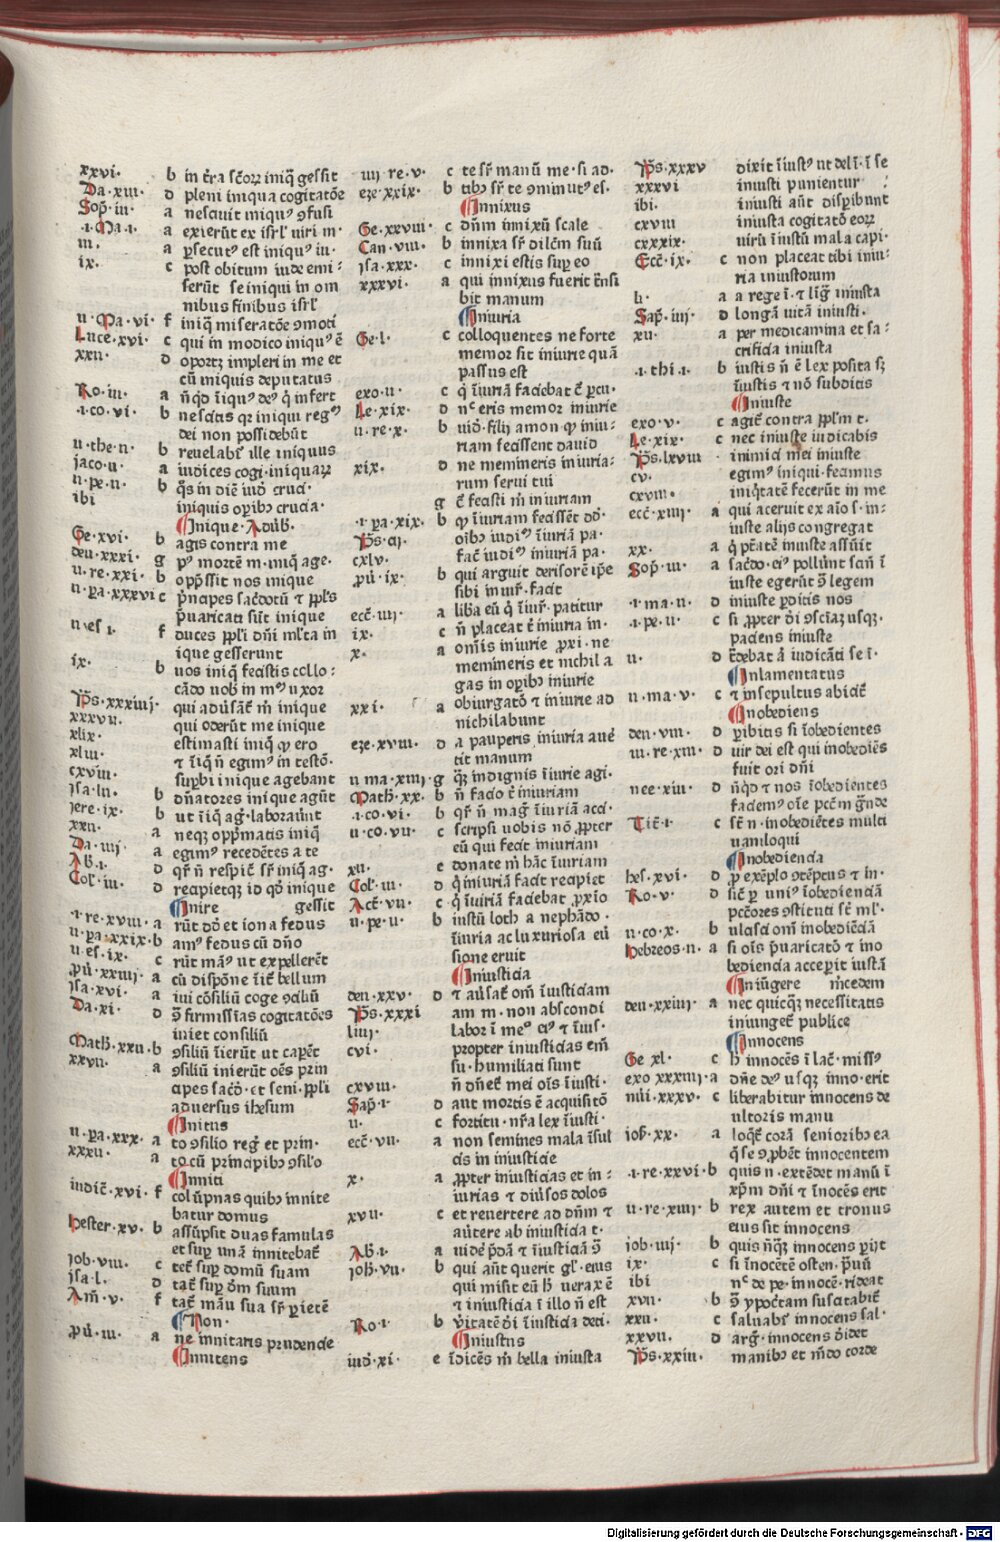 xxvi· b in t̄ra sc̄oꝝ iniq̄ gessit
Da·xiii· d pleni iniqua cogitatōe
Sop̄·iii· a nesciuit iniquꝰ ꝯfusi
·i·Ma·i· a exierūt ex isrl̄ uiri in·
iii· a ꝑsecutꝰ est iniquꝰ iu·
ix· c post obitum iude emi⸗
serūt se iniqui in om
nibus finibus isrl̄
ii·Ma·vi· f iniq̄ miseratōe ꝯmoti
Luce·xvi· c qui in modico iniquꝰ ē
xxii· d oportꝫ impleri in me et
cū iniquis deputatus
Ro·iii· a nūqd̄ īiquꝰ deꝰ q̄ infert
·i·co·vi· b nescitis qꝛ iniqui regꝰ
dei non possidebūt
ii·the·ii· b reuelabiꝰ ille iniquus
jaco·ii· a iudices cogi·iniquaꝝ
ii·pe·ii· b q̄s in diē iud̄ cruci·
ibi iniquis oꝑibꝯ crucia·
Inique·Adub̄·
Ge·xvi· b agis contra me
deu·xxxi· g pꝰ mortē m·iniq̄ age·
ii·re·xxi· b opp̄ssit nos inique
ii·pa·xxxvi c p̄ncipes sac̄dotū ⁊ ppl̄s
p̄uaricati sūt inique
ii·es·i· f duces ppl̄i dn̄i ml̄ta in
ique gesserunt
ix· b uos iniq̄ fecistis collo⸗
cādo uob̄ in mꝰ uxor
ps̄·xxxiiij· qui aduſāt̄ m̄ inique
xxxvii· qui oderūt me inique
xlix· estimasti iniq̄ ꝙ ero
xliii· ⁊ īiq̄ n̄ egimꝰ in testō·
cxviii· suꝑbi inique agebant
jsa·lii· b dn̄atores inique agūt
jere·ix· b ut īiq̄ aḡ·laboraūnt
xxii· a neqꝫ oppͥmatis iniq̄
Da·iiij a egimꝰ recedētes a te
Ab̄·i· d qr̄ n̄ respic̄ sr̄ iniq̄ ag·
Col̄·iii· d recipietqꝫ id qd̄ inique
Inire gessit
·i·re·xviii·a rūt dd̄ et iona fedus
ii·pa·xxix·b amꝰ fedus cū dn̄o
ii·es·ix· c rūt māꝰ ut expellerēt
pū·xxiiij· a cū dispōne īit̄ bellum
jsa·xvi· a iui cōsiliū coge ꝯciliū
Da·xi· d ꝯ firmissīas cogitatōes
iniet consiliū
Math̄·xxii·b ꝯsiliū īierūt ut capēt
xxvii· a ꝯsiliū inierūt oēs prin
cipes sacd̄·et seni·ppl̄i
aduersus ihesum
Initus
ii·pa·xxx· a to ꝯsilio reg̅ et prin·
xxxii· a to cū principibꝯ ꝯsil̄o
Inniti
iudic̄·xvi· f colūpnas quibꝯ innite
batur domus
hester·xv· b assūpsit duas famulas
et suꝑ unā innitebat̄
job·viii· c tet̄ suꝑ domū suam
jsa·l· d tat̄ suꝑ dm̄ suum
Am̄·v· f tat̄ māu sua sr̄ ꝑietē
Non·
pū·iii· a ne innitaris prudencie
Innitens
iiij re·v· c te sr̄ manū me·si ad·
eze·xxix· b tibꝯ sr̄ te ꝯminutꝰ es·
Innixus
Ge·xxviii· c dn̄m innixū scale
Can·viii· b innixa sr̄ dilc̄m suū
jsa·xxx· c innixi estis suꝑ eo
xxxvi· a qui innixus fuerit t̄nsi
bit manum
Iniuria
Ge·l· c colloquentes ne forte
memor sit iniurie quā
passus est
exo·ii· c q̄ īiuriā faciebat c̄ ꝑcu·
Le·xix· d nͨ eris memor iniurie
ii·re·x· b uid̄·filij amon ꝙ iniu⸗
riam fecissent dauid
xix· d ne memineris iniuria⸗
rum serui tui
g c̄ fecisti m̄ iniuriam
·i·pa·xix· b ꝙ īiuriam fecissēt dd̄·
ps̄·cij· oībꝯ iudiꝰ īiuriā pa·
cxlv· fac̄ iudiꝰ iniuriā pa·
pū·ix· b qui arguit derisorē ip̄e
sibi iniur̄·facit
ecc̄·iiij· a libͣa eū q̄ īiur̄·patitur
ix· c n̄ placeat t̄ iniuria in·
x· a om̄is iniurie ꝓxi·ne
memineris et nichil a
gas in oꝑibꝯ iniurie
xxi· a obiurgatō ⁊ iniurie ad
nichilabunt
eze·xviii· d a pauperis iniuria aūe
tit manum
ii ma·xiiij·g qꝫ indignis īiurie agi·
Math̄·xx· b n̄ facio t̄ iniuriam
·i·co·vi· b qr̄ n̄ mag̅ īiuriā acci·
ii·co·vii· c scripsi uobis nō ꝓpter
eū qui fecit iniuriam
xii· e donate m̄ hāc īiuriam
Col̄·iii· d q̄ iniuriā facit recipiet
Act̄·vii· c q̄ īiuriā faciebat ꝓxīo
ii·pe·ii· b iustū loth a nephādo·
īiuria ac luxuriosa eū
sione eruit
Iniusticia
deu·xxv· d ⁊ auſat̄ om̄ īiusticiam
ps̄·xxxi am m·non abscondi
liiij· labor ī meͦ ciꝰ ⁊ īius·
cvi· propter iniusticias em̄
su·humiliati sunt
cxviii· n̄ dn̄et̄ mei oīs īiusti·
Sap̄·i· d aut mortis ē acquisitō
ii· c fortitu·nr̄a lex īiusti·
ecc̄·vii· a non semines mala īsul
cis in iniusticie
x· a ꝓpter iniusticias et in⸗
iurias ⁊ diūſos dolos
xvii· c et reuertere ad dn̄m ⁊
aūtere ab iniusticia t·
Ab̄·i· a uidē p̄dā ⁊ īiusticiā ꝯ̄
joh̄·vii· b qui aūt querit gl̄·eius
qui misit eū h̄ uerax ē
⁊ iniusticia ī illo n̄ est
Ro·i· b ūitatē dī īiusticia deti·
Iniustus
iud̄·xi· e īdicēs m̄ bella iniusta
ps̄·xxxv dixit īiustꝰ ut deli·ī se
xxxvi iniusti punientur
ibi· iniusti aūt disꝑibunt
cxviii iniusta cogitatō eoꝝ
cxxxix· uirū īiustū mala capi·
Ecc̄·ix· c non placeat tibi iniu⸗
ria iniustorum
li· a a rege ī·⁊ lig̅ iniusta
Sap̄·iiij· d longā uitā iniusti·
xii· a per medicamina et sa⸗
crificia iniusta
·i·thi·i· b iustis n̄ ē lex posita sꝫ
īiustis ⁊ nō subditis
Iniuste
exo·v· c agit̄ contra ppl̄m t·
Le·xix· c nec iniuste iudicabis
ps̄·lxviii inimici mei iniuste
cv· egimꝰ iniqui·fecimus
cxviii· iniqͥtatē fecerūt in me
ecc̄·xiiij· a qui aceruit ex aīo s·in⸗
iuste alijs congregat
xx· a q̄ ptātē iniuste assūit
Sop̄·iii· a sacd̄o·eiꝰ pollūnt san̄ ī
iuste egerūt ꝯ̄ legem
·i·ma·ii· d iniuste ꝑditis nos
·i·pe·ii· c si ꝓpter dī ꝯsciaꝫ usqꝫ·
paciens iniuste
ii· d t̄debat a͛ iudicāti se ī·
Inlamentatus
ii·ma·v· c ⁊ insepultus abicit̄
Inobediens
deu·viii· d ꝑibitis si īobedientes
iii·re·xiii· d uir dei est qui inobediēs
fuit ori dn̄i
nee·xiii· d nūqd̄ ⁊ nos īobedientes
faciemꝰ oīe pcc̄m g̅nde
Tit̄·i· c st̄ n·inobediētes multi
uaniloqui
Inobediencia
hes·xvi· d ꝓ exēplo ꝯtēptus ⁊ in·
Ro·v· d sic̄ ꝑ uniꝰ īobedienciā
pcc̄ores ꝯstituti st̄ ml̄·
ii·co·x· b ulcisci om̄ inobediēciā
hebreos·ii· a si oīs p̄uaricatō ⁊ ino
bediencia accepit iustā
Iniūgere m̄cedem
deu·xxiiij· a nec quicqꝫ necessitatis
iniunget̄ publice
Innocens
Ge xl· c h̄ innocēs ī lac̄·missꝰ
exo xxxiiij·a dn̄e deꝰ usqꝫ inno·erit
nūi·xxxv· c liberabitur innocens de
ultoris manu
job·xx· a loqt̄ corā senioribꝯ ea
q̄ se ꝯꝓbēt innocentem
·i·re·xxvi·b quis n·extēdet manū ī
xp̄m dn̄i ⁊ īnocēs erit
ii·re·xiiij· b rex autem et tronus
eius sit innocens
job·iiij· b quis n̄qꝫ innocens ꝑijt
ix· c si īnocētē osten·p̄uū
ibi nͨ de pe·innocē·rideat
xvii· b ꝯ̄ ypoc̄tam suscitabit̄
xxii· c saluabiꝰ innocens sal·
xxvii· d arg̅·innocens dīdet
ps̄·xxiii· manibꝯ et mūdo corde
Digitalisierung gefördert durch die Deutsche Forschungsgemeinschaft - DFG